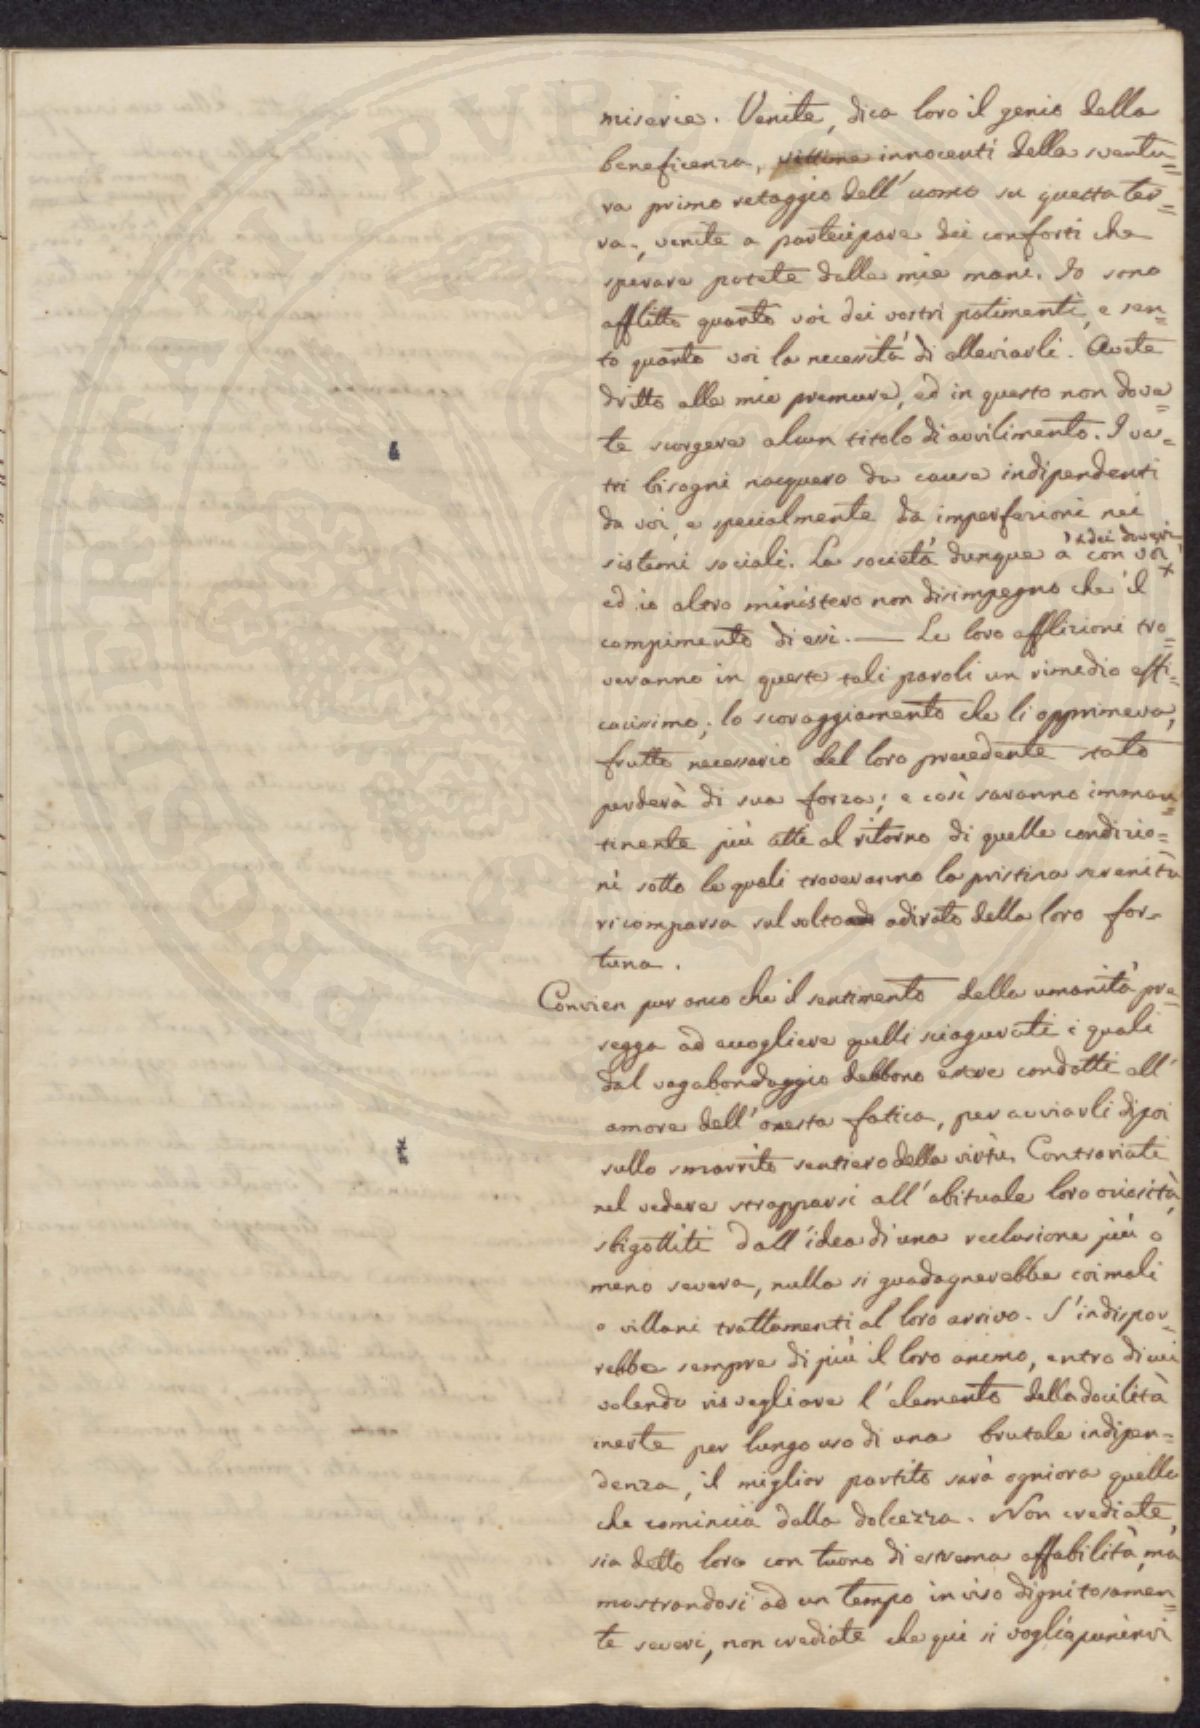 miserie. Venite, dica loro il genio della
beneficenza, vittime innocenti della sventu=
ra primo retaggio dell' uomo su questa ter=
ra, venite a partecipare dei conforti che
sperare potete dalle mie mani. Io sono
afflitto quanto voi dei vostri patimenti, e sen=
to quanto voi la necessità di alleviarli. Avete
dritto alle mie premure, ed in questo non dove=
te scorgere alcun titolo di avvilimento. I vos=
tri bisogni nacquero da cause indipendenti
da voi, e specialmente da imperfezioni nei
sistemi sociali. La società dunque à con voi
dei doveri
ed io altro ministero non disimpegno che il
compimento di essi. — Le loro afflizioni tro=
veranno in queste tali parole un rimedio effi=
cacissimo; lo scoraggiamento che li opprimeva,
frutto necessario del loro precedente stato
perderà di sua forza; e così saranno imman=
tinente più atti al ritorno di quelle condizio=
ni sotto le quali troveranno la pristina serenità
ricomparsa sul volto adirato della loro for=
tuna.
Convien pur anco che il sentimento della umanità pre=
segga ad accogliere quelli sciagurati i quali
dal vagabondaggio debbono essere condotti all'
amore dell' onesta fatica, per avviarli di poi
sullo smarrito sentiero della virtù. Contrariati
nel vedere strapparsi all' abituale loro oziosità,
sbigottiti dall' idea di una reclusione più o
meno severa, nulla si guadagnerebbe coi mali
o villani trattamenti al loro arrivo. S' indispor=
rebbe sempre di più il loro animo, entro di cui
volendo risvegliare l' elemento della docilità
inerte per lungo uso di una brutale indipen=
denza, il miglior partito sarà ogniora quello
che comincia dalla dolcezza. Non crediate,
sia detto loro con tuono di estrema affabilità, ma
mostrandosi ad un tempo in viso dignitosamen=
te severi, non crediate che qui si voglia punirvi